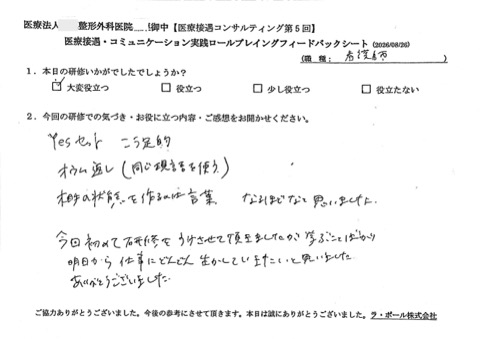 医療法人 整形外科医院 御中【医療接遇コンサルティング第5回】
医療接遇・コミュニケーション実践ロールプレイングフィードバックシート(2026/08/26)
(職種: 看護師 )
1.本日の研修いかがでしたでしょうか?
☑ 大変役立つ □ 役立つ □ 少し役立つ □ 役立たない
2.今回の研修での気づき・お役に立つ内容・ご感想をお聞かせください。
Yesセット こう定的
オウム返し(同じ言葉を使う)
相手の状態を作るのは言葉 なるほどなと思いました。
今回初めて研修をうけさせて頂きましたが学ぶことばかり
明日から仕事にどんどん生かしていきたいと思いました
ありがとうございました
ご協力ありがとうございました。今後の参考にさせて頂きます。本日は誠にありがとうございました。ラ・ポール株式会社